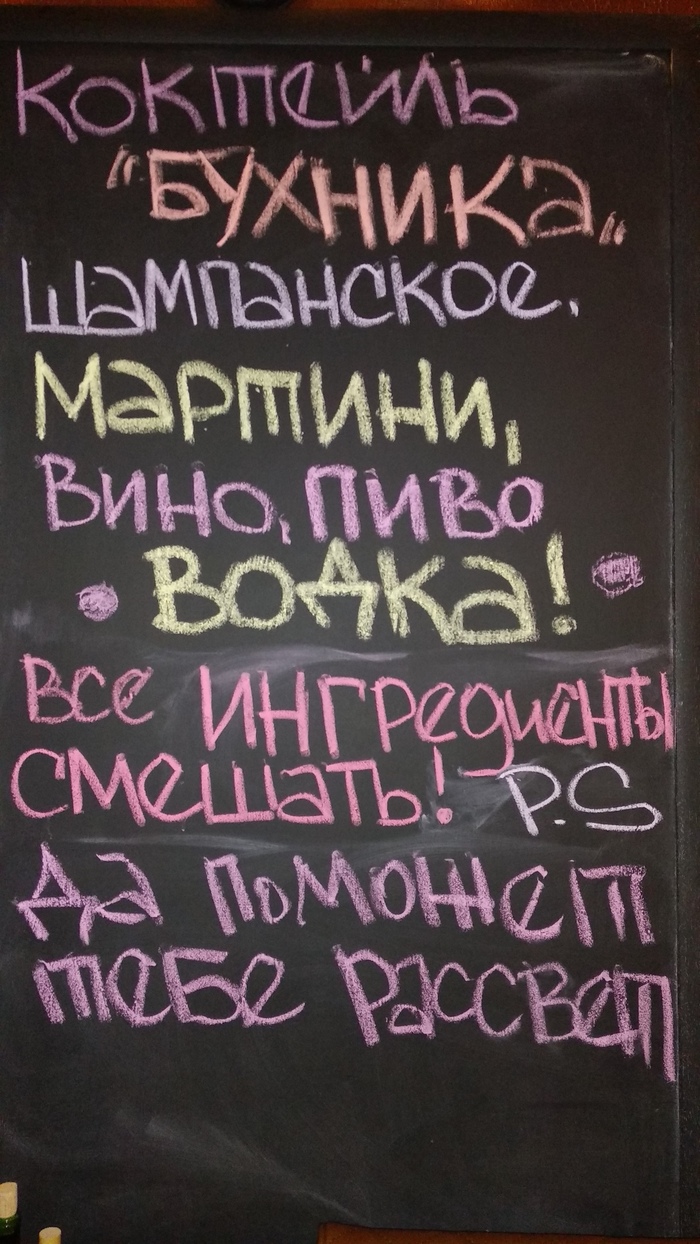 Коктейль
"БУХНИКа"
шампанское.
Мартини,
Вино, пиво
• Водка! •
Все ингредиенты
смешать! P.S
Да поможет
тебе Рассвет